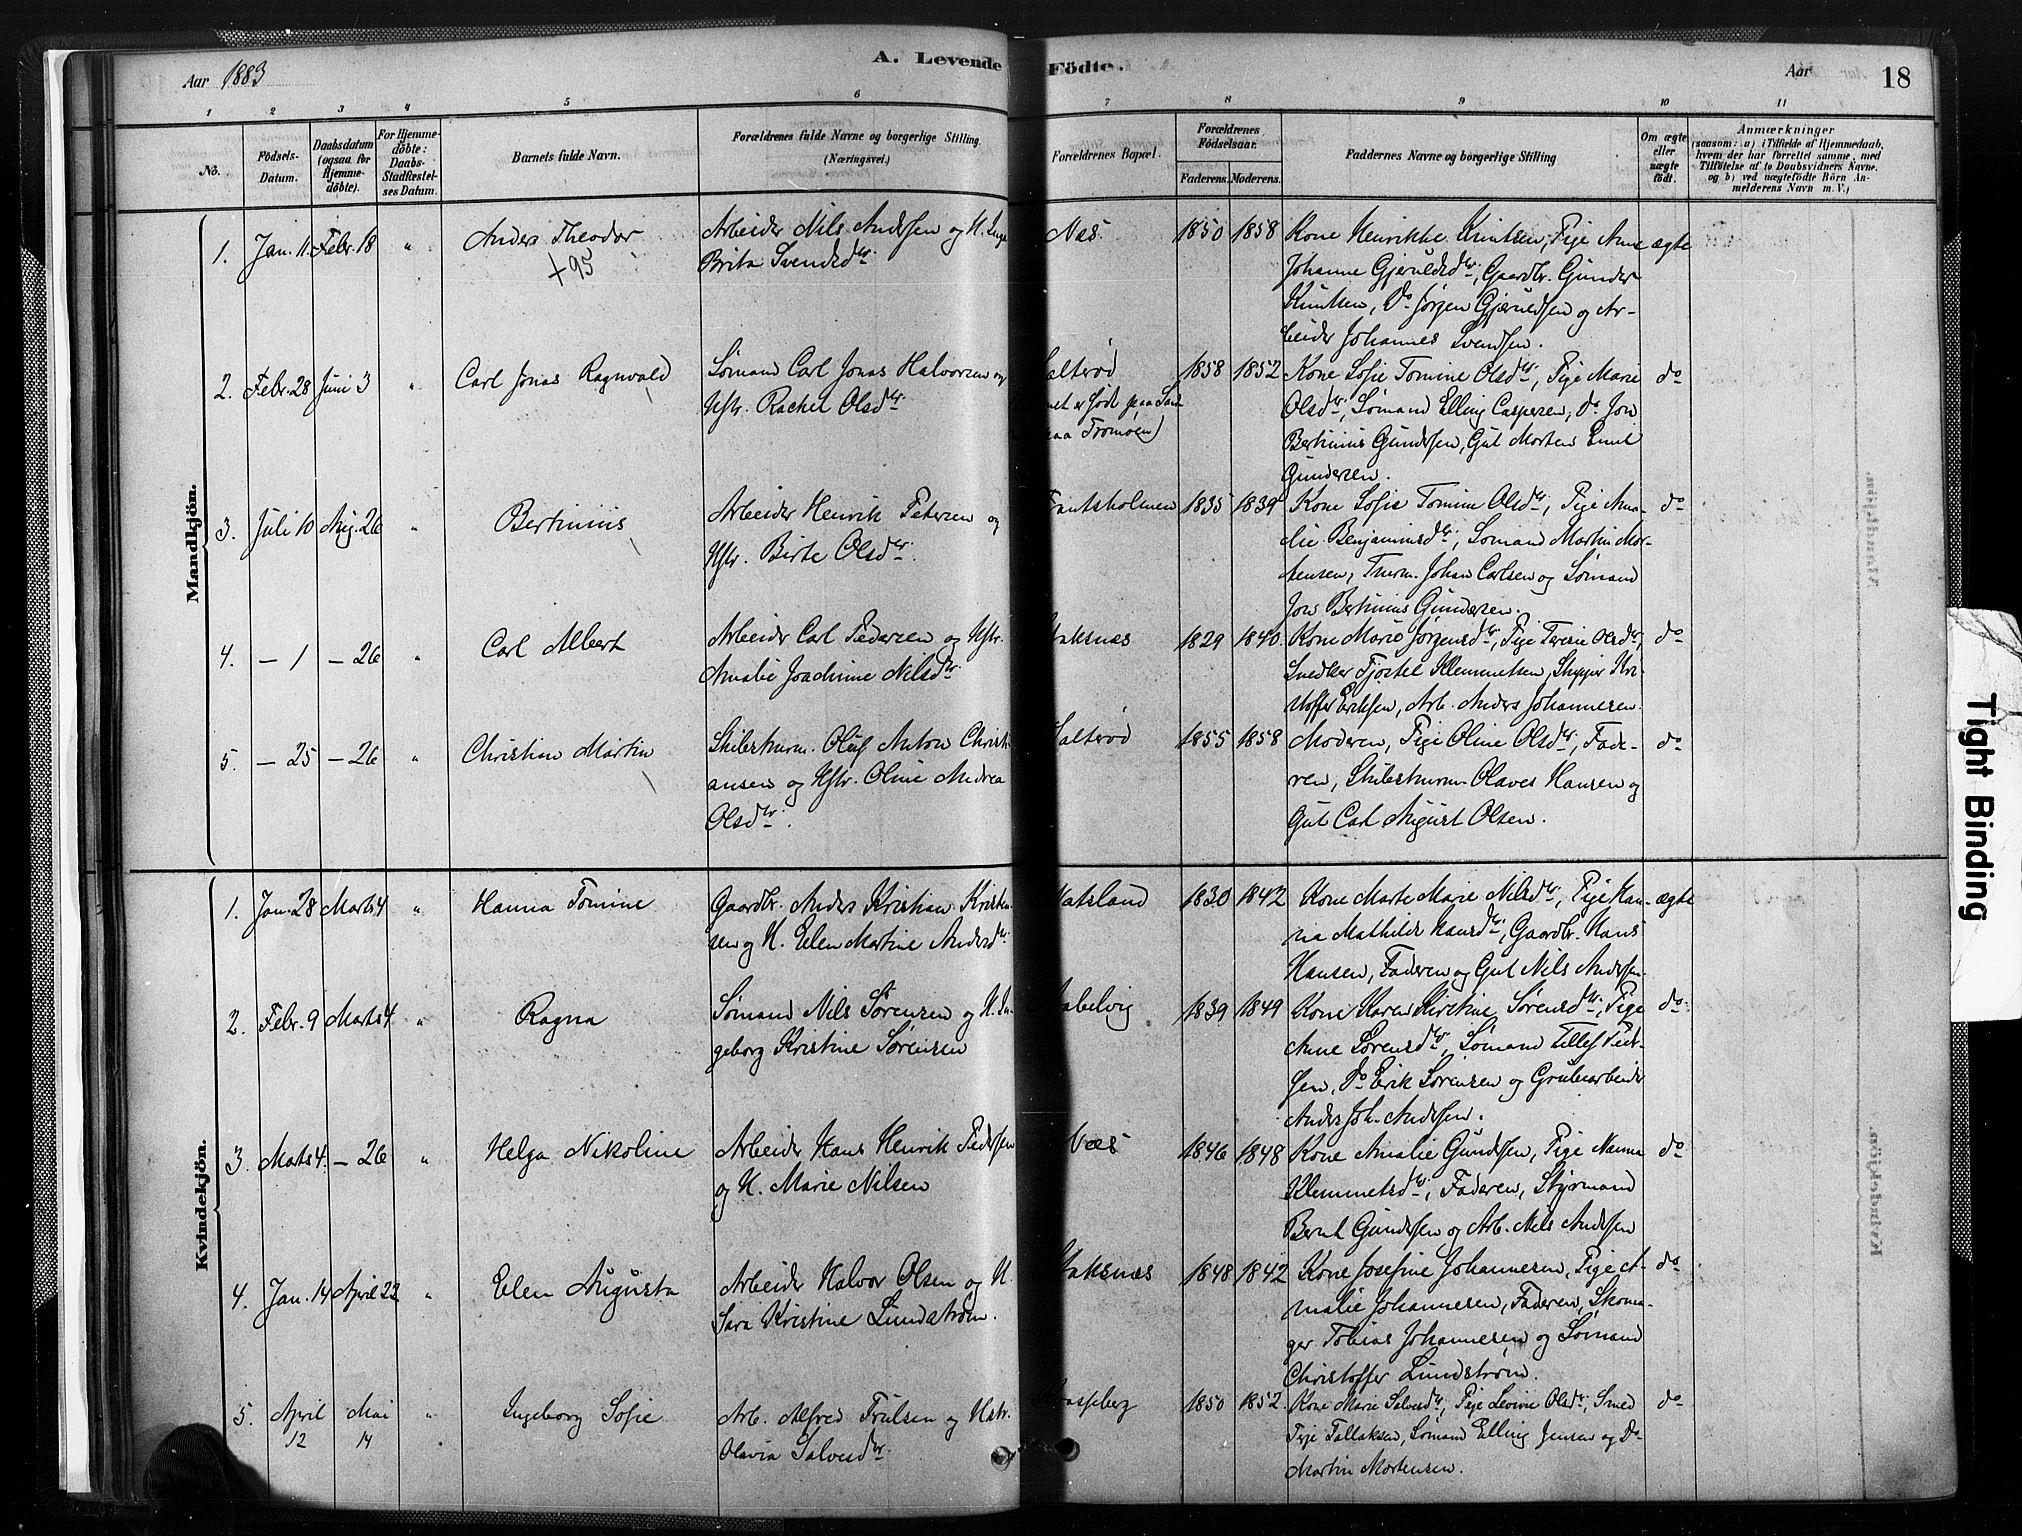 Aar 1883
A. Levende Födte.
Aar
18
1 2 3 4 5 6 7 8 9 10 11
No.
Födsels-
Datum.
Daabsdatum
(ogsaa for
Hjemme-
döbte).
For Hjemme-
döbte:
Daabs-
Stadfæstel-
ses Datum.
Barnets fulde Navn.
Forældrenes fulde Navne og borgerlige Stilling
(Næringsvei.)
Forældrenes Bopæl.
Forældrenes
Födselsaar.
Faderens. Moderens.
Faddernes Navne og borgerlige Stilling
Om ægte
eller
uægte
født.
Anmærkninger
(saasom: a) i Tilfælde af Hjemmedaab,
hvem der har forrettet samme, med
Tilföielse af to Daabsvidners Navne,
og b) ved uægtefödte Börn An-
melderens Navn m. V.)
Mandkjön.
1. Jan. 11. Febr. 18 "
Anders Theodor
+95
Arbeider Nils Andersen og H. Inga
Brita Svendsdtr.
Næs
1850 1858
Kone Henrikke Knutsen, Pige Anne
Johanne Gjeruldsdtr, Gaardbr. Gunder
Knutsen, Do Jörgen Gjeruldsen og Ar-
beider Johannes Svendsen.
ægte
2. Febr. 28 Juni 3 "
Carl Jonas Ragnvald
Sømand Carl Jonas Halvorsen og
Hstr. Rachel Olsdtr.
alterød
net er født paa Sand
paa Tromøen)
1858 1852
Kone Sofie Tomine Olsdtr, Pige Marie
Olsdtr, Sømand Elling Caspersen, do Jon
Bertinius Gundersen, Gut Morten Emil
Gundersen.
do
3. Juli 10 Aug. 26 "
Bertinius
Arbeider Henrik Petersen og
Hstr. Birte Olsdtr.
Fantsholmen
1835 1839
Kone Sofie Tomine Olsdtr, Pige Ama-
lie Benjaminsdtr, Sømand Martin Mor-
tensen, Tmrm. Johan Carlsen og Sømand
Jon Bertinius Gundersen.
do
4. – 1 – 26 "
Carl Albert
Arbeider Carl Pedersen og Hstr.
Amalie Joachime Nilsdtr.
aksnæs
1829 1840.
Kone Maria Jørgensdtr, Pige Terese Olsdtr,
Snedker Tjøstel Klemmetsen, Skipper Kri-
stoffer Eriksen, Arb. Anders Johannesen.
do
5. – 25 – 26 "
Christian Martin
Skibstmrm. Oluf Anton Christi-
ansen og Hstr. Oline Andrea
Olsdtr.
Salterød
1855 1858
Moderen, Pige Oline Olsdtr, Fade-
ren, Skibstmrm. Olaves Hansen og
Gut Carl August Olsen.
do
Kvindekjön.
1. Jan. 28 Marts 4 "
Hanna Tomine
Gaardbr. Anders Kristian Kristen-
sen og H. Elen Martine Andersdtr.
Natsland
1830 1842
Kone Marte Marie Nilsdtr, Pige Han-
na Mathilde Hansdtr, Gaardbr. Hans
Hansen, Faderen og Gut Nils Andersen
ægte
2. Febr. 9 Marts 4 "
Ragna
Sømand Nils Sørensen og H. In-
geborg Kristine Sørensen
abelvig
1839 1849
Kone Karen Kirstine Sørensdtr, Pige
Anne Sørensdtr, Sømand Tellef Peder-
sen, Do Erik Sørensen og Grubearbeider
Anders Joh. Andersen.
do
3. Marts 4. – 26 "
Helga Nikoline
Arbeider Hans Henrik Pedersen
og H. Marie Nilsen
Næs
1846 1848
Kone Amalie Gundersen, Pige Nanna
Klemmetsdtr, Faderen, Styrmand
Bernt Gundersen og Arb. Nils Andersen
do
4. Jan. 14 April 22 "
Elen Augusta
Arbeider Halvor Olsen og H.
Sara Kristine Lundstrøm.
aksnæs
1848 1842
Kone Josefine Johannesen, Pige A-
malie Johannesen, Faderen, Skoma-
ger Tobias Johannesen og Sømand
Christoffer Lundstrøm.
do
5. April 12 Mai 14 "
Ingeborg Sofie
Arb. Alfred Trulsen og Hstr.
Olavia Salvesdtr.
1850 1852.
Kone Marie Salvesdtr, Pige Lovine Olsdtr, Smed
Terje Tallaksen, Sømand Elling Jensen og Do
Martin Mortensen.
do
Tight Binding